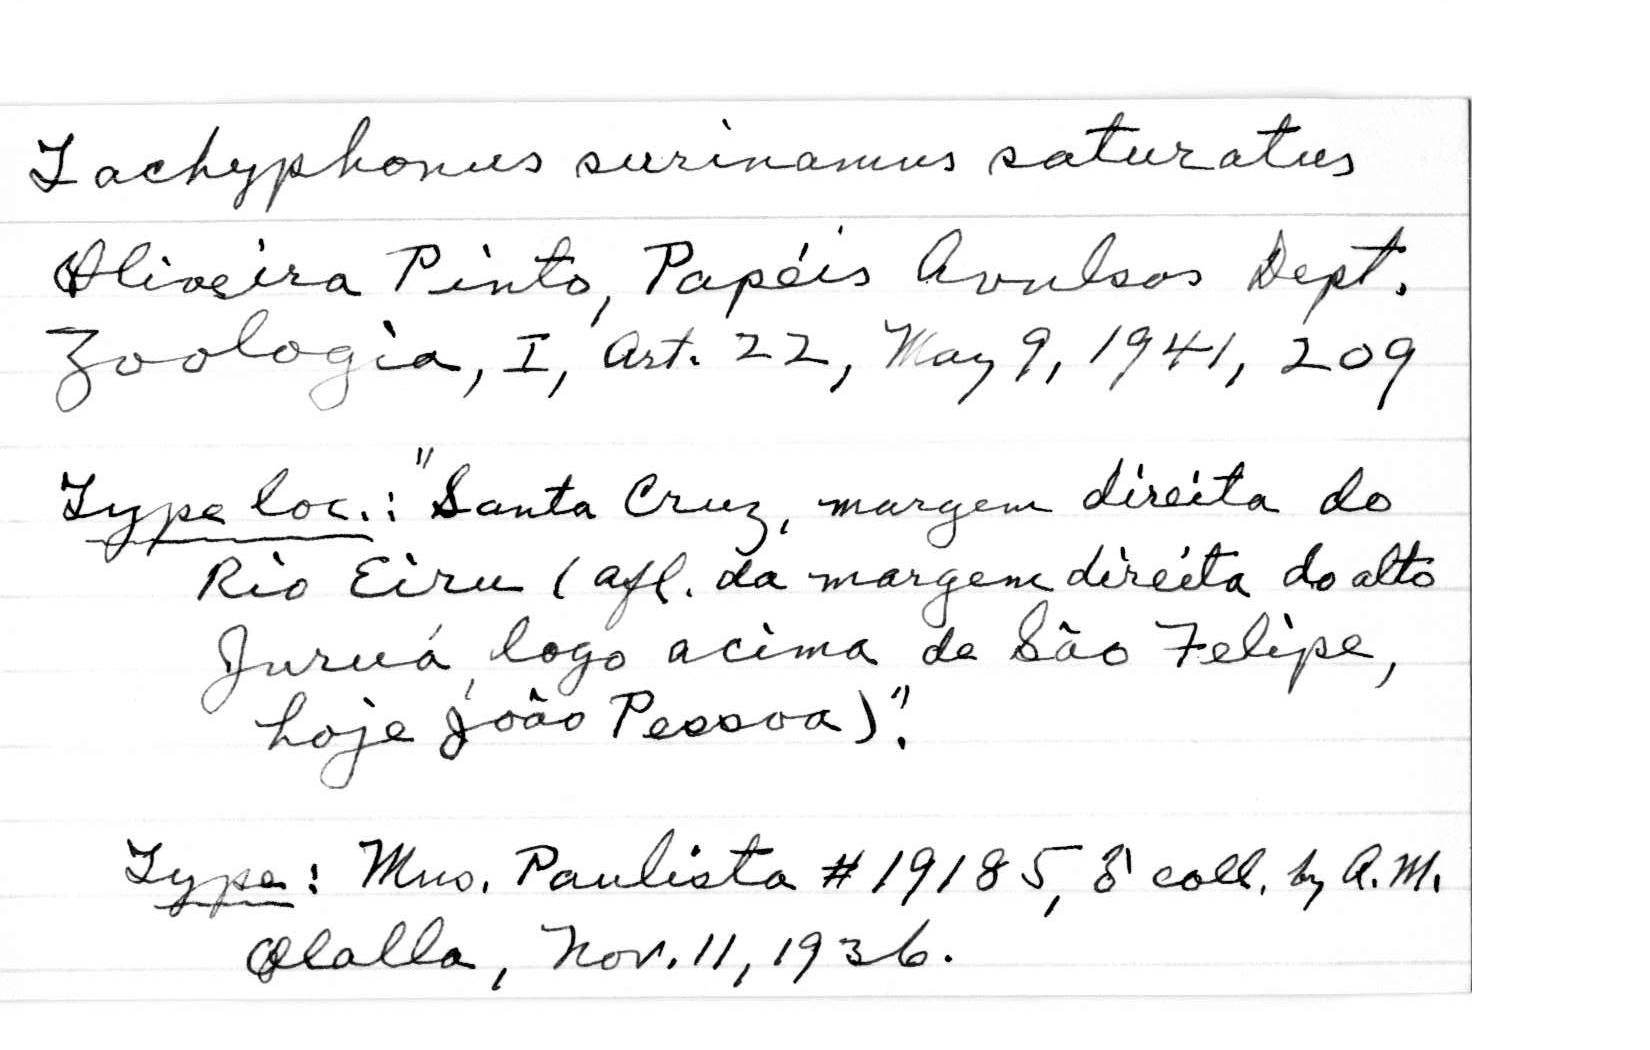 Tachyphonus surinamus saturatus
Oliveira Pinto, Papéis Avulsos Dept.
Zoologia, I, Art. 22, May 9, 1941, 209
Type loc.: "Santa Cruz, margem direita do
Rio Eiru (afl. da margem direita do alto
Juruá, logo acima de São Felipe,
hoje João Pessoa)".
Type: Mus. Paulista # 19185, ♂ coll. by A. M.
Olalla, Nov. 11, 1936.